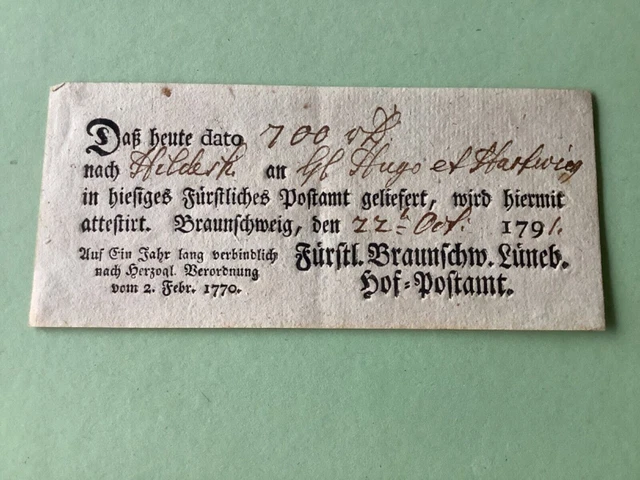 Daß heute dato 700 rt
nach Hildesh. an Hl Hugo et Hartwieg
in hiesiges Fürstliches Postamt geliefert, wird hiermit
attestirt. Braunschweig, den 22t Oct. 1791.
Auf Ein Jahr lang verbindlich
nach Herzogl. Verordnung
vom 2. Febr. 1770.
Fürstl. Braunschw. Lüneb.
Hof-Postamt.